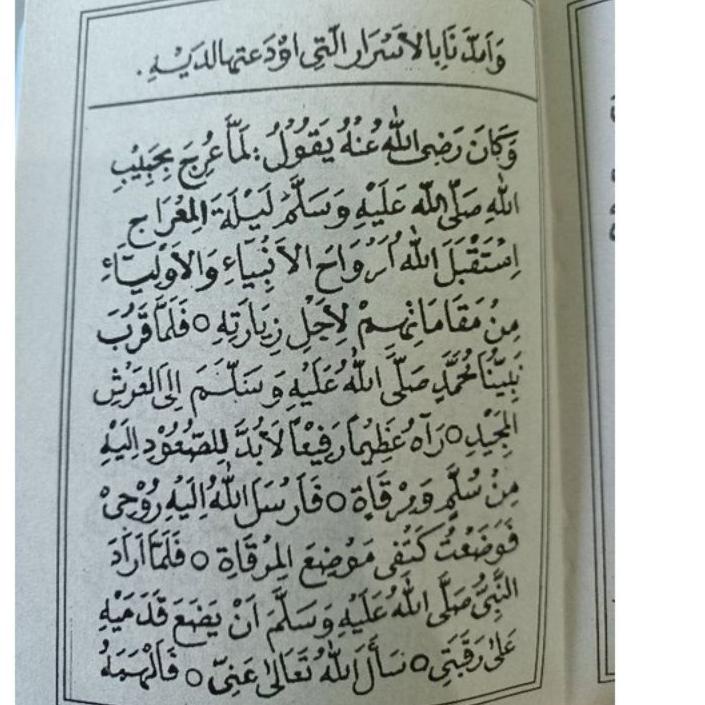 وَاَمِدَّنَا بِالْاَسْرَارِ الَّتِى اَوْدَعْتَهَا لَدَيْهِ.
وَكَانَ رَضِىَ اللهُ عَنْهُ يَقُوْلُ: لَمَّا عُرِجَ بِحَبِيْبِ
اللهِ صَلَّى اللهُ عَلَيْهِ وَسَلَّمَ لَيْلَةَ الْمِعْرَاجِ
اِسْتَقْبَلَ اللهُ اَرْوَاحَ الْاَنْبِيَاءِ وَالْاَوْلِيَاءِ
مِنْ مَقَامَاتِهِمْ لِاَجْلِ زِيَارَتِهِ ○ فَلَمَّا قَرُبَ
نَبِيُّنَا مُحَمَّدٌ صَلَّى اللهُ عَلَيْهِ وَسَلَّمَ اِلَى الْعَرْشِ
الْمَجِيْدِ ○ رَآهُ عَظِيْمًا رَفِيْعًا لَابُدَّ لِلصُّعُوْدِ اِلَيْهِ
مِنْ سُلَّمٍ وَمِرْقَاةٍ ○ فَاَرْسَلَ اللهُ اِلَيْهِ رُوْحِىْ
فَوَضَعْتُ كَتِفِى مَوْضِعَ الْمِرْقَاةِ ○ فَلَمَّا اَرَادَ
النَّبِىُّ صَلَّى اللهُ عَلَيْهِ وَسَلَّمَ اَنْ يَضَعَ قَدَمَيْهِ
عَلٰى رَقَبَتِى ○ سَأَلَ اللهَ تَعَالٰى عَنِّىْ ○ فَاَلْهَمَهُ